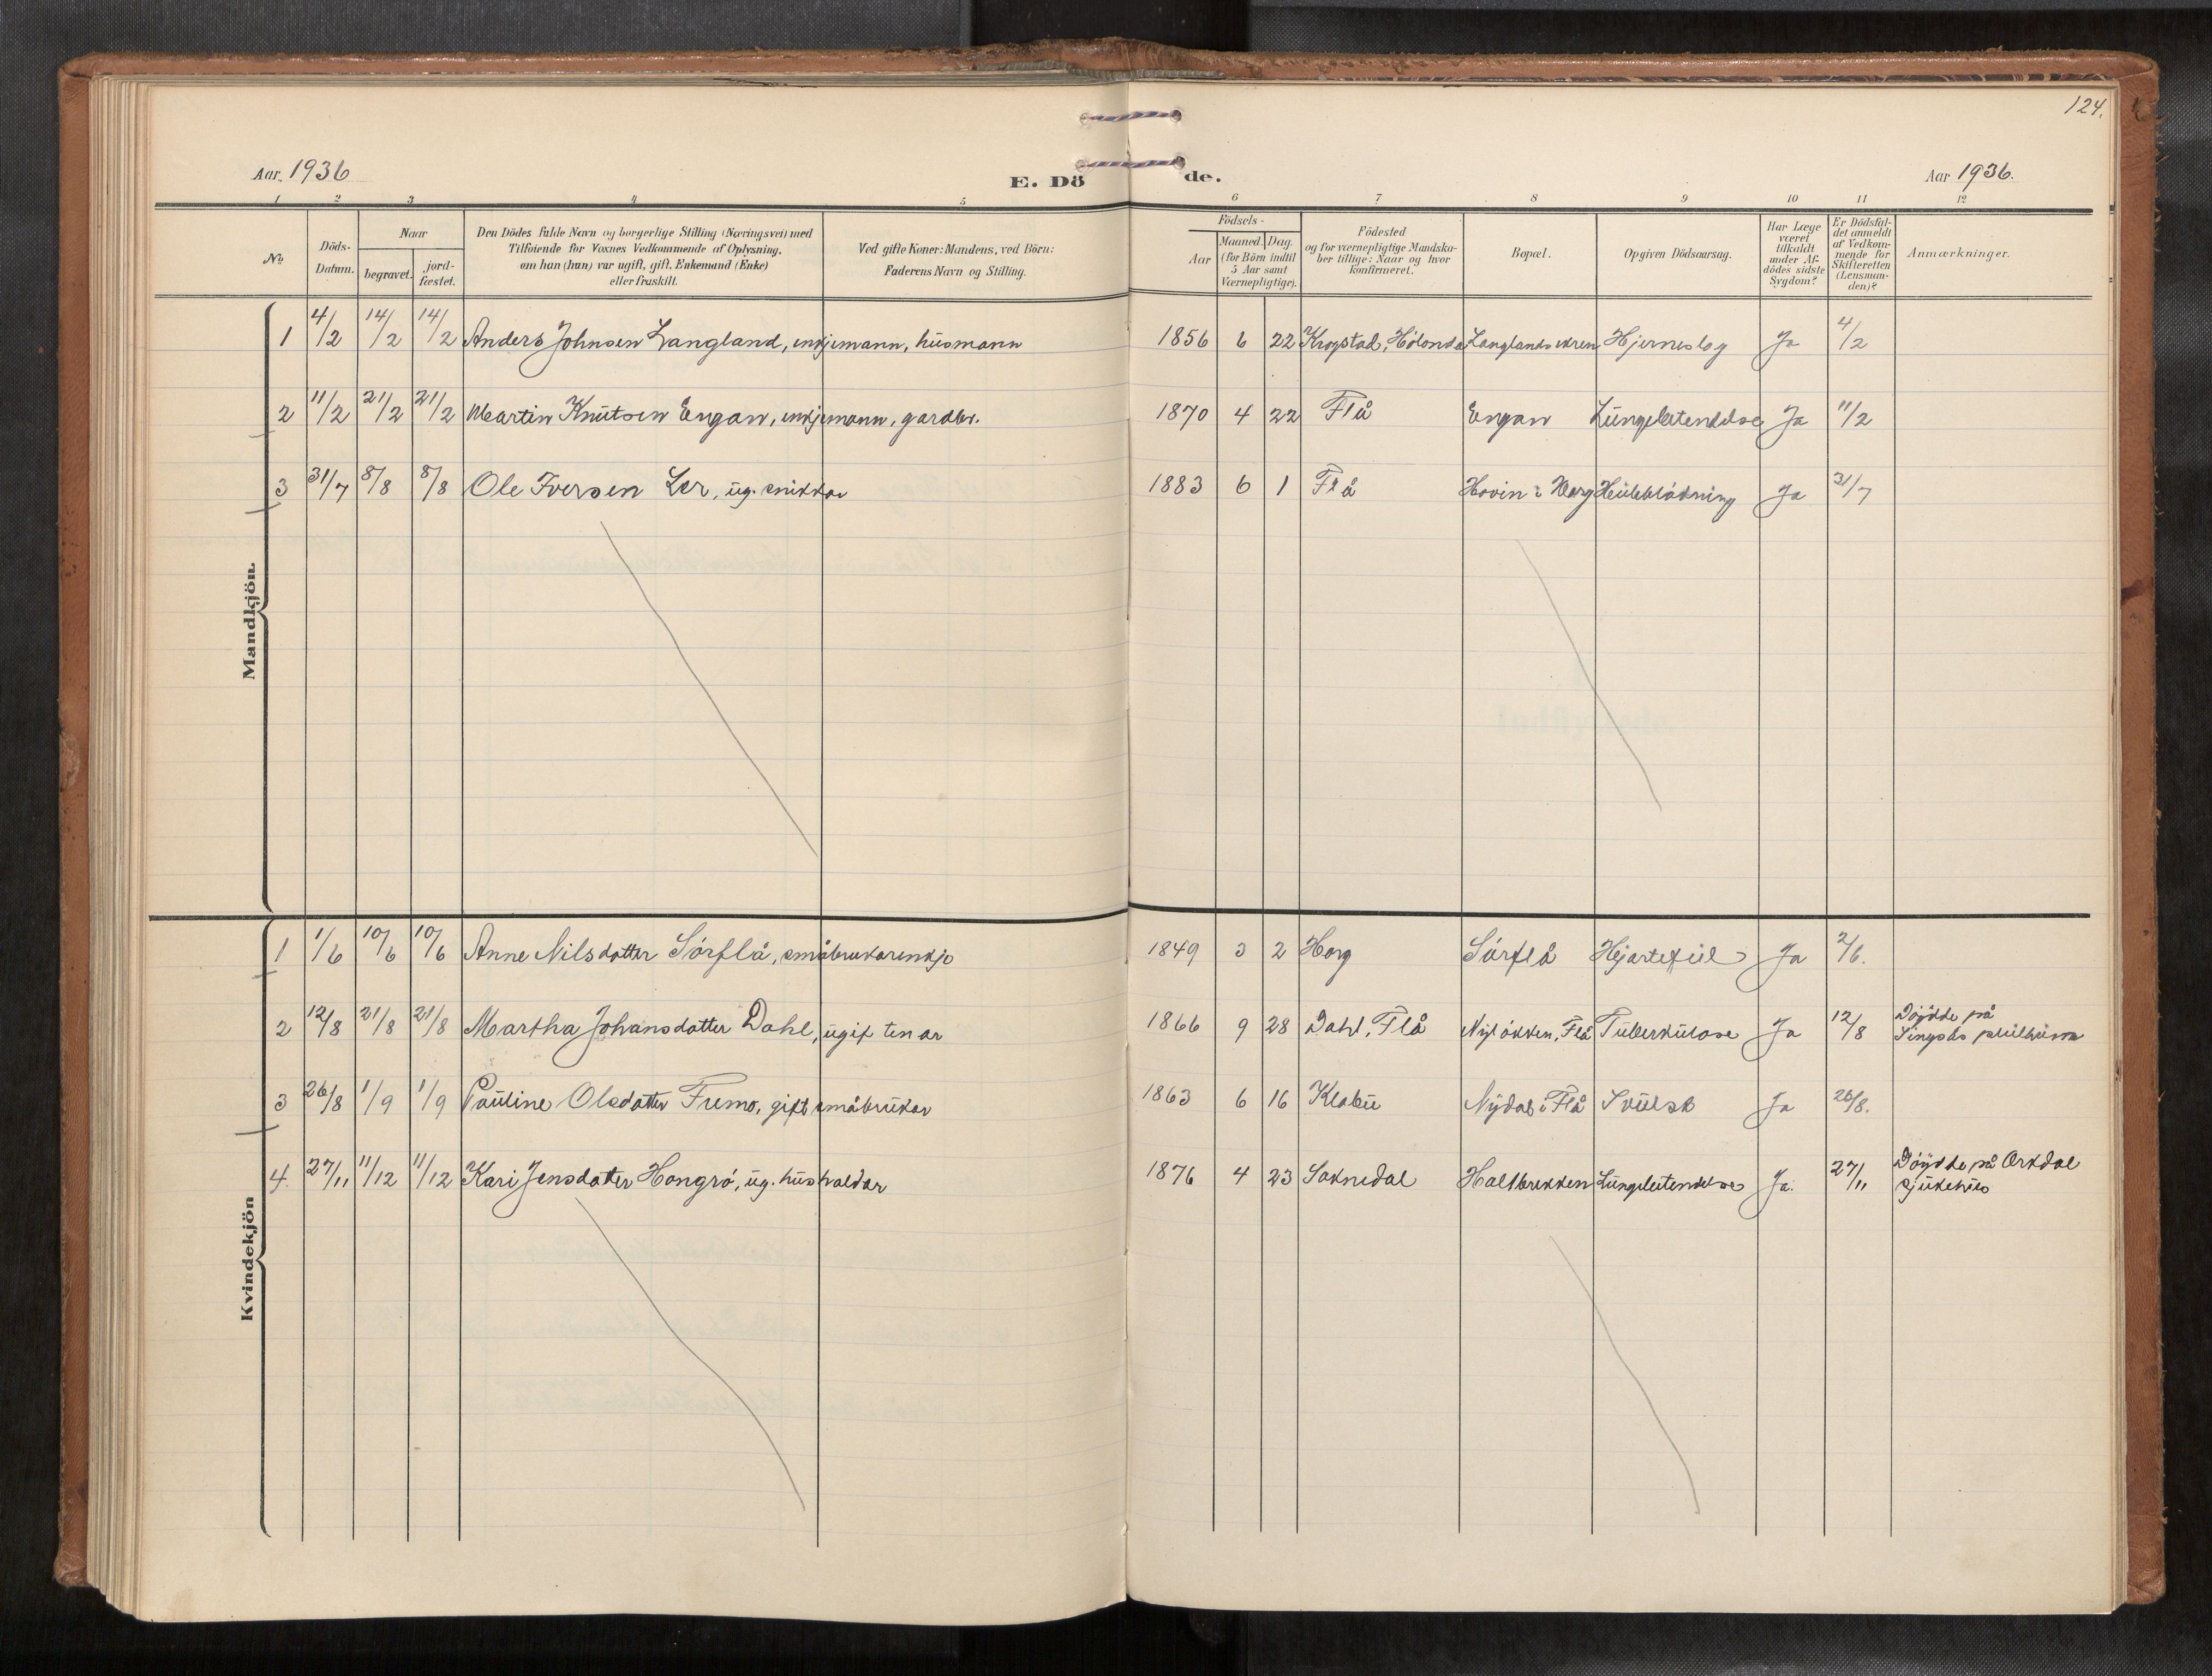 124.
Aar. 1936
E. Dö
de.
Aar 1936.
1 2 3 4 5 6 7 8 9 10 11 12
No
Döds-Datum.
Naar
begravet.
jord-fæstet.
Den Dödes fulde Navn og borgerlige Stilling (Næringsvei) med
Tilföiende for Voxnes Vedkommende af Oplysning,
om han (hun) var ugift, gift, Enkemand (Enke)
eller fraskilt.
Ved gifte Koner: Mandens, ved Börn:
Faderens Navn og Stilling.
Födsels-
Aar
Maaned. Dag.
(for Börn indtil
5 Aar samt
Værnepligtige).
Födested
og for værnepligtige Mandska-
ber tillige: Naar og hvor
konfirmeret.
Bopæl.
Opgiven Dödsaarsag.
Har Læge
været
tilkaldt
under Af-
dödes sidste
Sygdom?
Er Dödsfal-
det anmeldt
af Vedkom-
mende for
Skifteretten
(Lensman-
den)?
Anmærkninger.
Mandkjön.
1 4/2 14/2 14/2 Anders Johnsen Langland, enkjemann, husmann 1856 6 22 Krogstad, Hölonda Langlandsekren Hjerneslag Ja 4/2
2 11/2 21/2 21/2 Martin Knutsen Engan, enkjemann, gardbr. 1870 4 22 Flå Engan Lungebetendelse Ja 11/2
3 31/7 8/8 8/8 Ole Iversen Ler, ug. snikkar 1883 6 1 Flå Hovin i Horg Ja 31/7
Kvindekjön
1 1/6 10/6 10/6 Anne Nilsdatter Sörflå, småbrukarenkje 1849 3 2 Horg Sörflå Hjartefeil Ja 2/6.
2 12/8 21/8 21/8 Martha Johansdatter Dahl, ugif tenar 1866 9 28 Dahl, Flå Nyløkken, Flå Tuberkulose Ja 12/8 Döydde på
Singsås
3 26/8 1/9 1/9 Pauline Olsdatter Fremo, gift småbrukar 1863 6 16 Klæbu Nydal i Flå Svulst Ja 26/8.
4. 27/11 11/12 11/12 Kari Jensdatter Hongrö, ug. hushaldar 1876 4 23 Soknedal Haltbrekken Lungebetendelse Ja. 27/11 Döydde på Orkdal
sjukehus